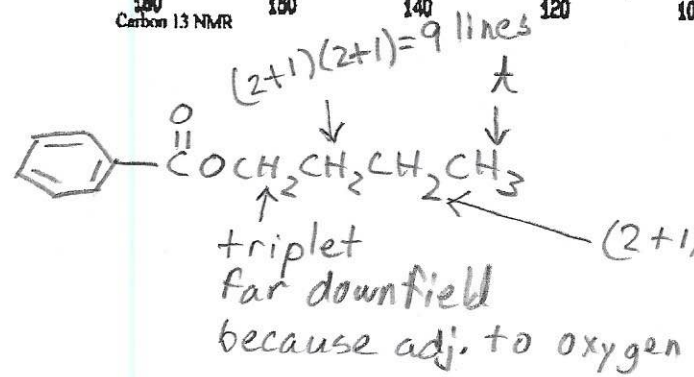 150 140 120 10
Carbon 13 NMR
(2+1)(2+1)=9 lines
t
O
C O CH2CH2CH2CH3
triplet
(2+1)
far downfield
because adj. to oxygen